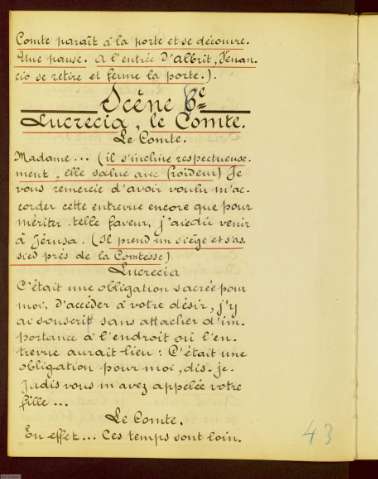 Comte paraît à la porte et se découvre.
Une pause. A l'entrée D'Albrit, Venan-
cio se retire et ferme la porte.).
Scène 6e
Lucrecia, le Comte.
Le Comte.
Madame... (il s'incline respectueuse-
ment, elle salue avec froideur) Je
vous remercie d'avoir voulu m'ac-
corder cette entrevue encore que pour
mériter telle faveur, j'aie dû venir
à Jérusa. (Il prend un siège et s'as-
sied près de la Comtesse)
Lucrecia
C'était une obligation sacrée pour
moi, d'accéder à votre désir, j'y
ai souscrit sans attacher d'im-
portance à l'endroit où l'en-
trevue aurait lieu: C'était une
obligation pour moi, dis-je.
Jadis vous m'avez appelée votre
fille...
Le Comte.
En effet... Ces temps sont loin.
43